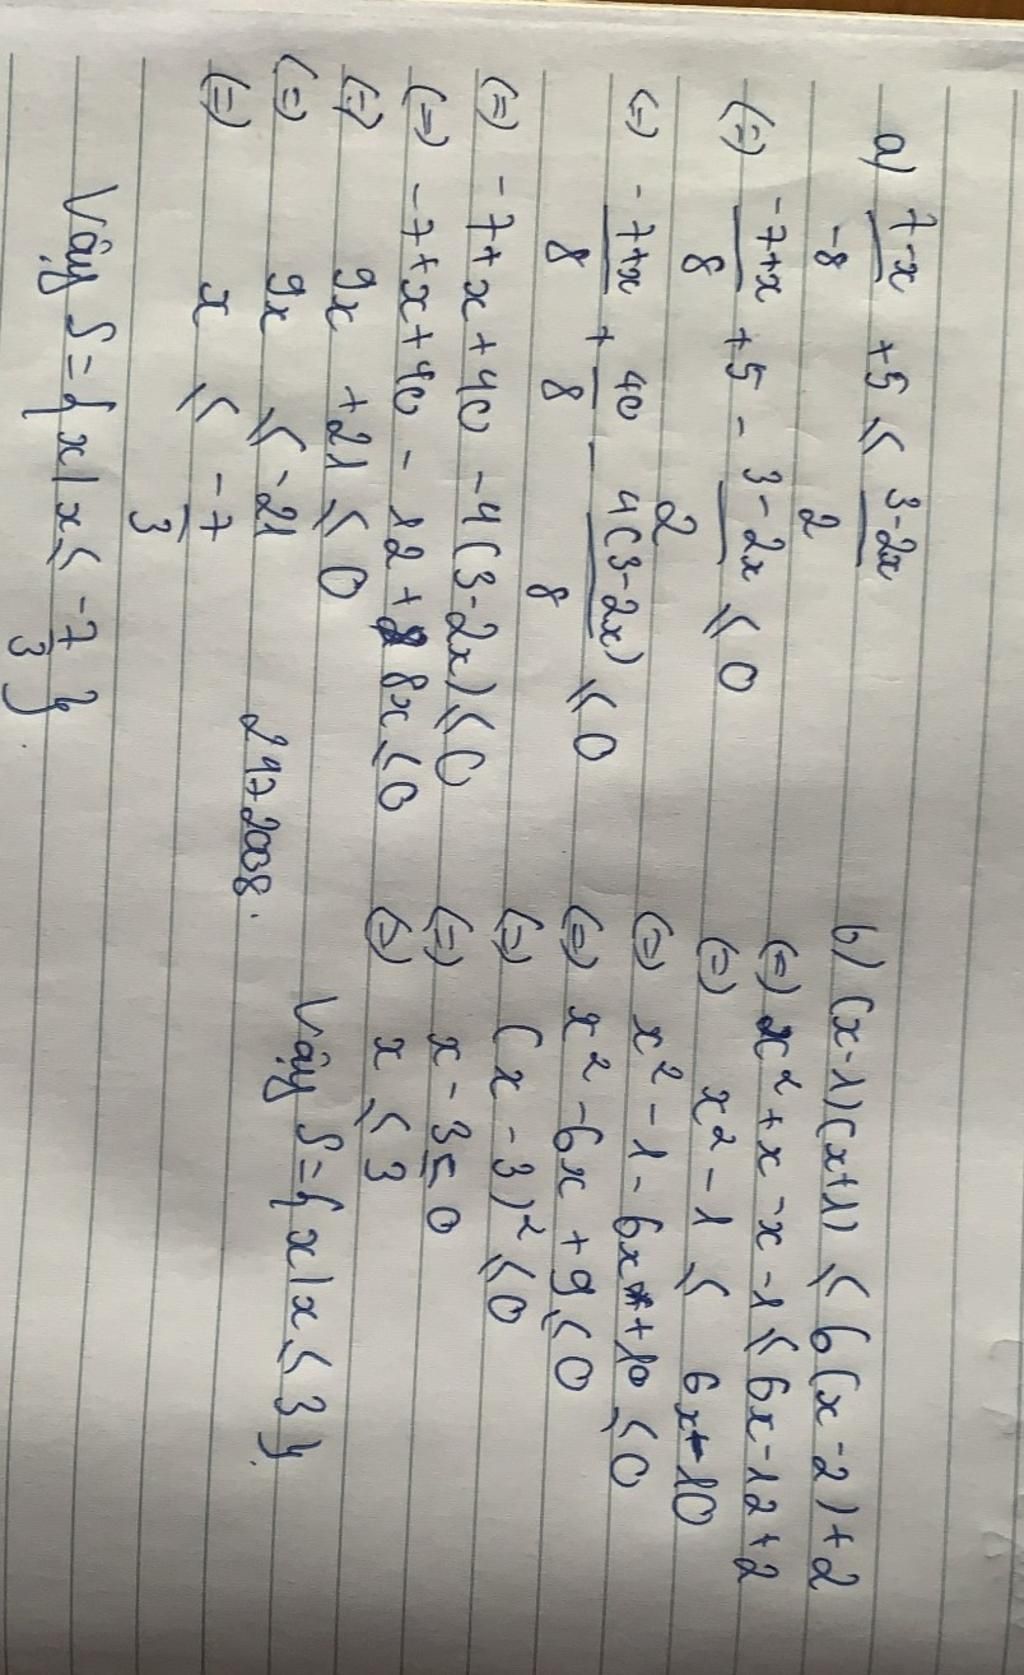 a) 7-x/-8 +5 ≤ 3-2x/2
(=) -7+x/8 +5 - 3-2x/2 ≤ 0
(=) -7+x/8 + 40/8 - 4(3-2x)/8 ≤ 0
(=) -7+x+40 -4(3-2x) ≤ 0
(=) -7+x+40 - 12+8x ≤ 0
(=) 9x +21 ≤ 0
(=) 9x ≤ -21
(=) x ≤ -7/3
Vậy S={x|x ≤ -7/3}.
2172008.
b) (x-1)(x+1) ≤ 6(x-2)+2
(=) x²+x-x-1 ≤ 6x-12+2
(=) x²-1 ≤ 6x-10
(=) x²-1-6x+10 ≤ 0
(=) x²-6x+9 ≤ 0
(=) (x-3)² ≤ 0
(=) x-3 ≤ 0
(=) x ≤ 3
Vậy S={x|x ≤ 3}.